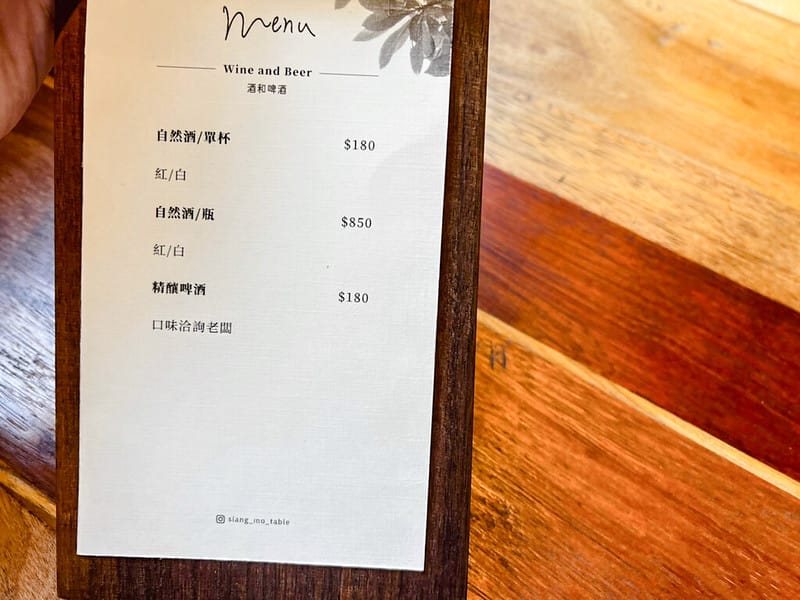 Menu
Wine and Beer
酒和啤酒
自然酒/單杯 $180
紅/白
自然酒/瓶 $850
紅/白
精釀啤酒 $180
口味洽詢老闆
siang_ino_table